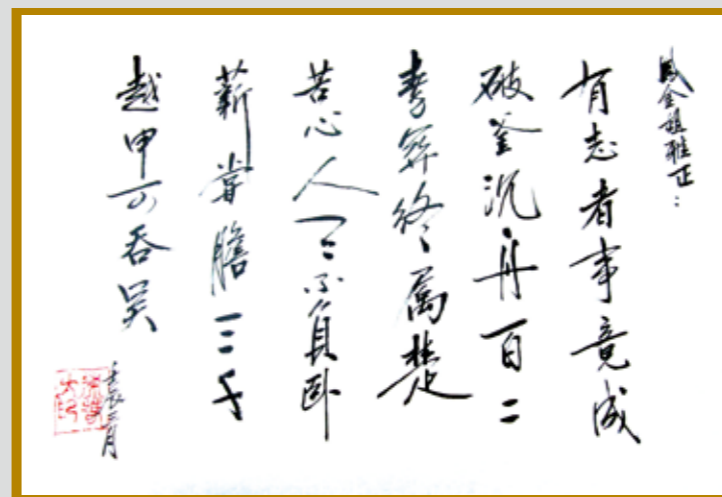 鳳金姐雅正：
有志者事竟成
破釜沉舟百二
秦关终属楚
苦心人天不負卧
薪嘗膽三千
越甲可吞吴
壬辰二月